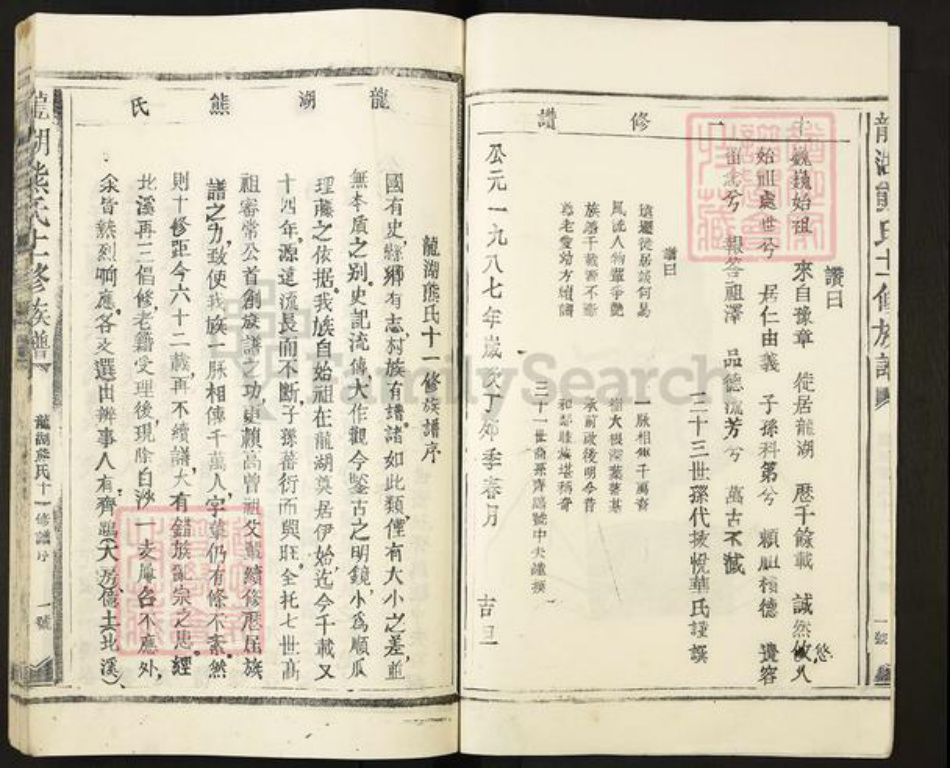 龍湖熊氏十一修族譜
一號
十一修讚
讚曰
巍巍始祖 來自豫章 徙居龍湖 歷千餘載 誠然悠久
始祖處世兮 居仁由義 子孫科第兮 賴祖積德 遺容
宙念兮 報答祖澤 品德流芳兮 萬古不滅
三十三世孫代拔悅華氏謹譔
讚曰
遠遷徙居談何易 一脈相傳千萬裔
風流人物輩爭艷 樹大根深葉茂基
族譜千載要不斷 承前啟後明今昔
尊老愛幼方續譜 和鄰睦族堪稱奇
三十一世裔孫齊鵾號中夫謹撰
公元一九八七年歲次丁卯季春月 吉旦
龍湖熊氏
龍湖熊氏十一修族譜序
國有史,縣鄉有志,村族有譜,諸如此類,僅有大小之差,並
無本質之別。史記流傳,大作觀今鑒古之明鏡,小為順瓜
理藤之依据。我族自始祖在龍湖奠居伊始,迄今千載又
十四年,源遠流長而不斷,子孫蕃衍而興旺。全托七世高
祖審常公首創族譜之功,更賴高曾祖父輩續修歷屆族
譜之力,致使我族一脈相傳千萬人,字輩仍有條不紊。然
則十修距今六十二載,再不續譜,大有錯族亂宗之患。經
北溪再三倡修,老籍受理後,現除白沙一支屢召不應外,
余皆熱烈响應。各支選出辦事人,有齊鵾(大房)儒士(北溪),
龍湖熊氏十一修族譜
龍湖熊氏十一修譜序
一號
FamilySearch